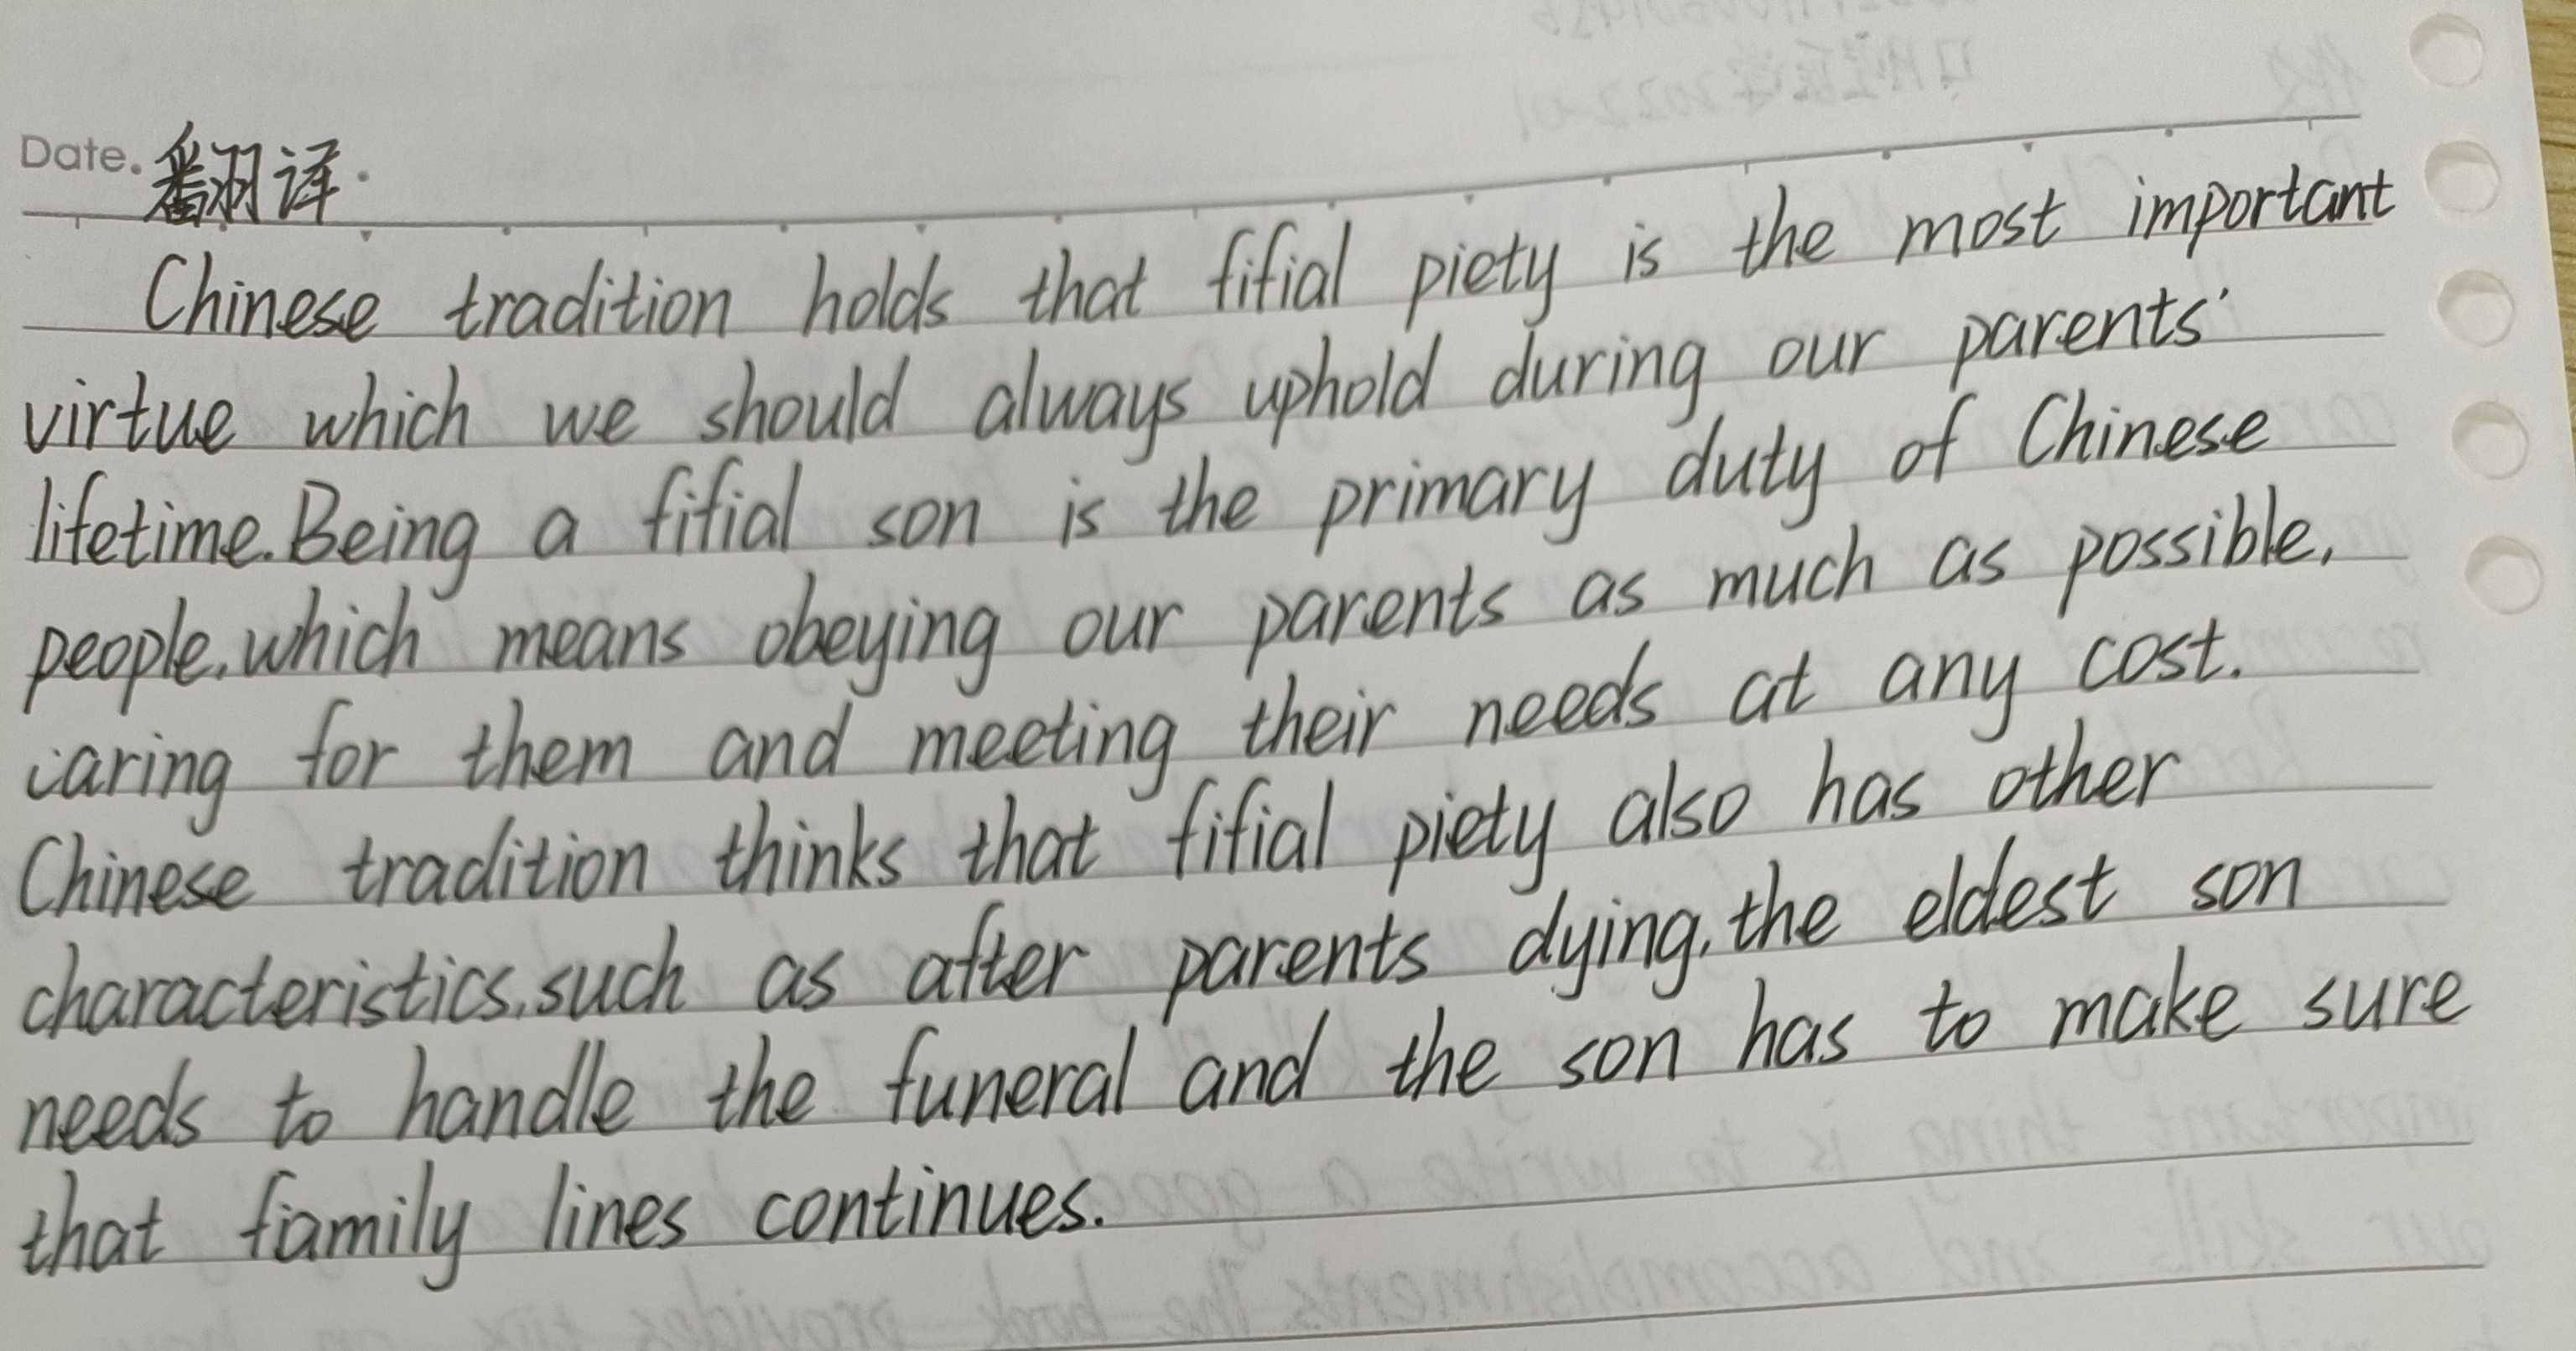 Date. 翻译.
Chinese tradition holds that fifial piety is the most important
virtue which we should always uphold during our parents'
lifetime. Being a fifial son is the primary duty of Chinese
people, which means obeying our parents as much as possible,
caring for them and meeting their needs at any cost.
Chinese tradition thinks that fifial piety also has other
characteristics, such as after parents dying, the eldest son
needs to handle the funeral and the son has to make sure
that family lines continues.